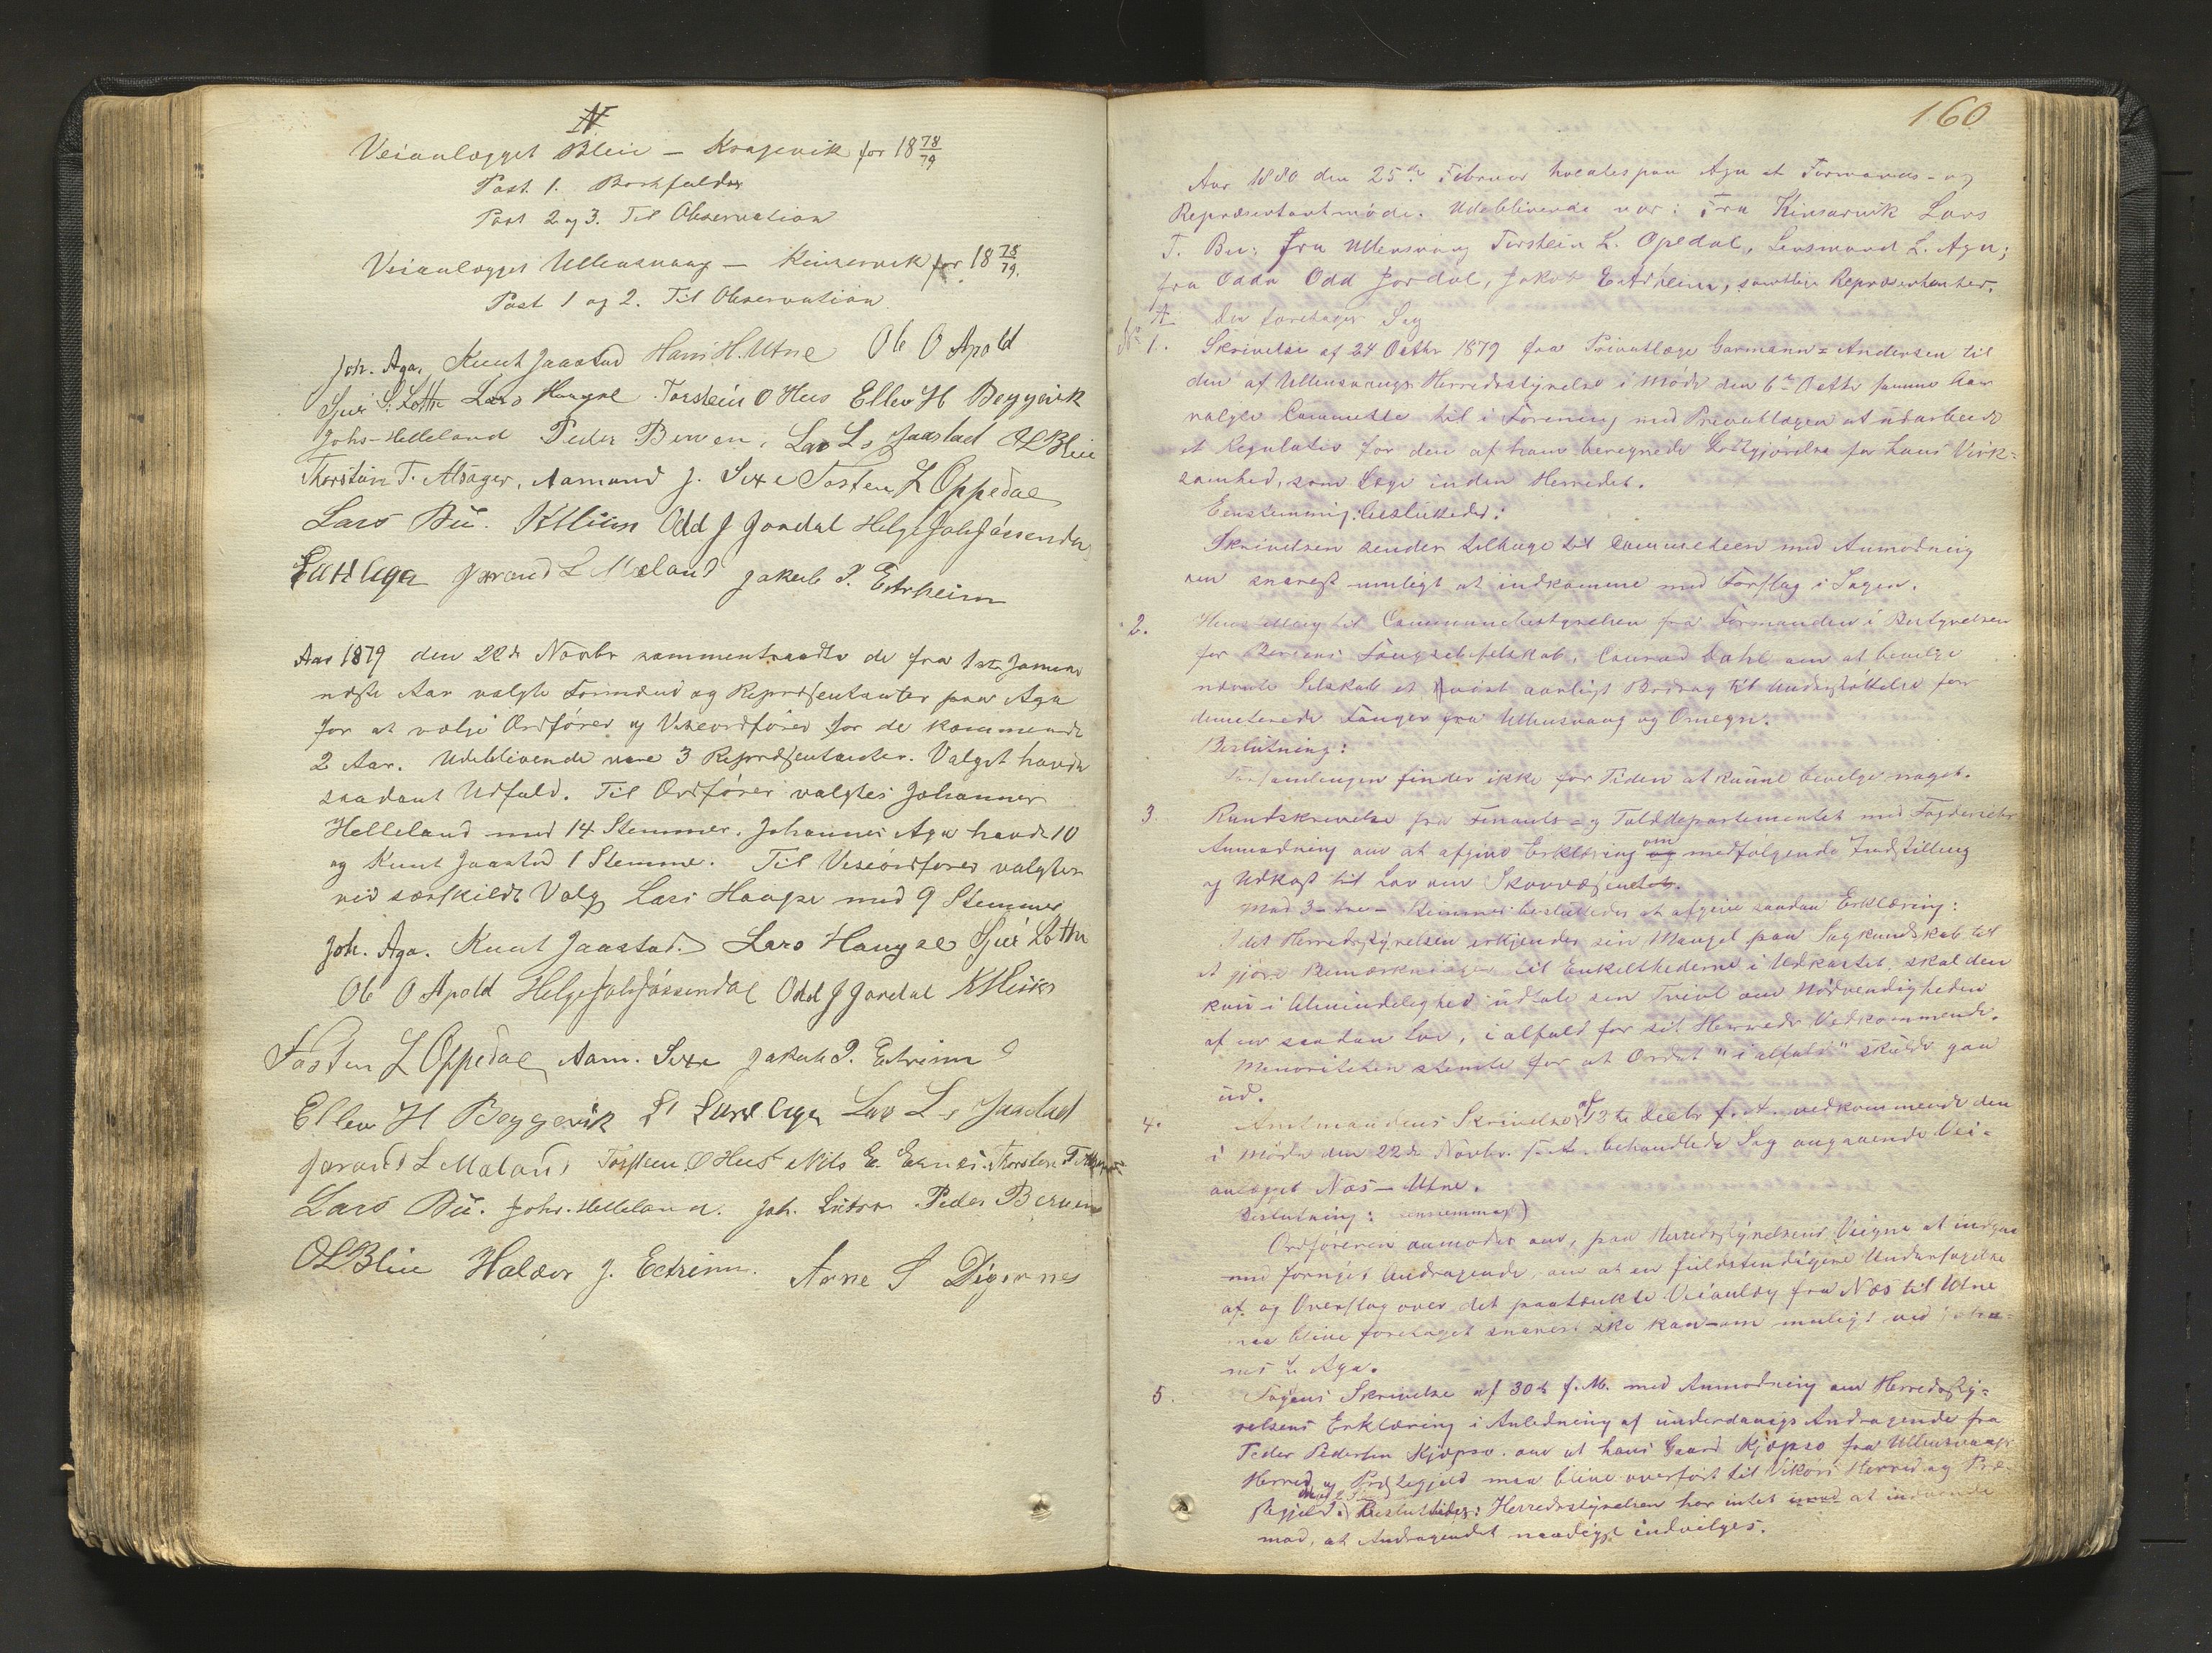 N
Veianlægget Bleie – Kragevik for 18 78/79
Post. 1. Bortfalder
Post 2 og 3. Til Observation
Veianlægget Ullensvang – Kinservik for 18 78/79.
Post 1 og 2. Til Observation
Joh. Aga, Knut Jaastad Hans H. Utne Ole O Apold
Sjur S. Lothe Lars Haugse Torstein O Hus Ellev H Beggevik
Johs Helleland Peder Berven, Lars L. Jaastad OLBleie
Thorstein T. Alsager, Aamund J. Sexe Tosten L Oppedal
Lars Bu. Odd J Jordal Helge Johs Jøssendal
Aga Jørand L Mæland Jakob P. Eitrheim
Aar 1879 den 22de Novbr sammentraadte de fra 1ste Januar
næste Aar valgte Formænd og Repræsentanter paa Aga
for at vælge Ordfører og Viseordfører for de kommende
2 Aar. Udeblivende vare 3 Repræsentanter. Valget havde
saadant Udfald. Til Ordfører valgtes Johannes
Helleland med 14 Stemmer. Johannes Aga havde 10
og Knut Jaastad 1 Stemme. Til Viseordfører valgtes
ved særskildt Valg Lars Haugse med 9 Stemmer
Joh. Aga. Knut Jaastad. Lars Haugse Sjur Lothe
Ole O Apold Helge Johs Jøssendal Odd J Jordal
Tosten L Oppedal Aam. Sexe Jakob P. Eitreim
Ellev H Beggevik Aga Lars L. Jaastad
Jørand L Mæland Torstein O Hus Nils E. Thorstein T. Alsager
Lars Bu. Johs. Helleland. Joh. Peder Berven
OLBleie Haldor J. Eitreim. Arne S Digernes
160
Aar 1880 den 25de Februar holdtes paa Aga et Formands- og
Repræsentantmøde. Udeblivende var: Fra Kinsarvik Lars
T. Bu; fra Ullensvang Torstein L. Opedal, Lensmand L. Aga;
fra Odda Odd Jordal, Jakob Eitrheim, samtlige Repræsentanter.
A. Der foretages Sag
No 1. Skrivelse af 24 Octbr 1879 fra Privatlæge Garmann-Andersen til
den af Ullensvangs Herredsstyrelse i Møde den 6te Octbr samme Aar
valgte Committe til i Forening med Privatlægen at udarbeide
et Regulativ for den af ham beregnede Godtgjørelse for hans Virk=
somhed, som Læge inden Herredet.
Eenstemmig besluttedes:
Skrivelsen sendes tilbage til Committeen med Anmodning
om snarest muligt at indkomme med Forslag i Sagen.
2. Henstilling til Communebestyrelsen fra Formanden i Bestyrelsen
for Bergens Fængselsselskab, Conrad Dahl om at bevilge
nævnte Selskab et vist aarligt Bidrag til Understøttelse for
dimiterede Fanger fra Ullensvang og Omegn.
Beslutning:
Forsamlingen finder ikke for Tiden at kunne bevilge noget.
3. Rundskrivelse fra Finants- og Tolddepartementet med Fogderiets
Anmodning om at afgive Erklæring om medfølgende Indstilling
og Udkast til Lov om Skovvæsenet.
Mod 3 – tre – Stemmer besluttedes at afgive saadan Erklæring:
Idet Herredsstyrelsen erkjender sin Mangel paa Sagkundskab til
at gjøre Bemærkninger til Enkelthederne i Udkastet, skal den
kun i Almindelighed udtale sin Tvivl om Nødvendigheden
af en saadan Lov, i alfald for sit Herreds Vedkommende.
Minoriteten stemte for at Ordet "i alfald" skulde gaa
ud.
4. Amtmandens Skrivelse af 13de Decbr f. A. vedkommende den
i Møde den 22de Novbr. f. A. behandlede Sag angaaende Vei=
anlægget Næs – Utne.
Beslutning: (enstemmig)
Ordføreren anmodes om, paa Herredsstyrelsens Vegne at indgaa
med fornyet Andragende, om at en fuldstendigere Undersøgelse
af og Overslag over det paatænkte Veianlæg fra Næs til Utne
maa blive foretaget snarest ske kan – om muligt ved Johan=
nes L. Aga.
5. Fogens Skrivelse af 30te f. M. med Anmodning om Herredssty=
relsens Erklæring i Anledning af underdanigs Andragende fra
Peder Pedersen Kjepso om at hans Gaard Kjepso fra Ullensvangs
Herred og Præstegjeld maa blive overført til Vikørs Herred og Præ=
stegjeld. Besluttedes: Herredsstyrelsen har intet at indvende
mod, at Andragendet naadigst indvilges.